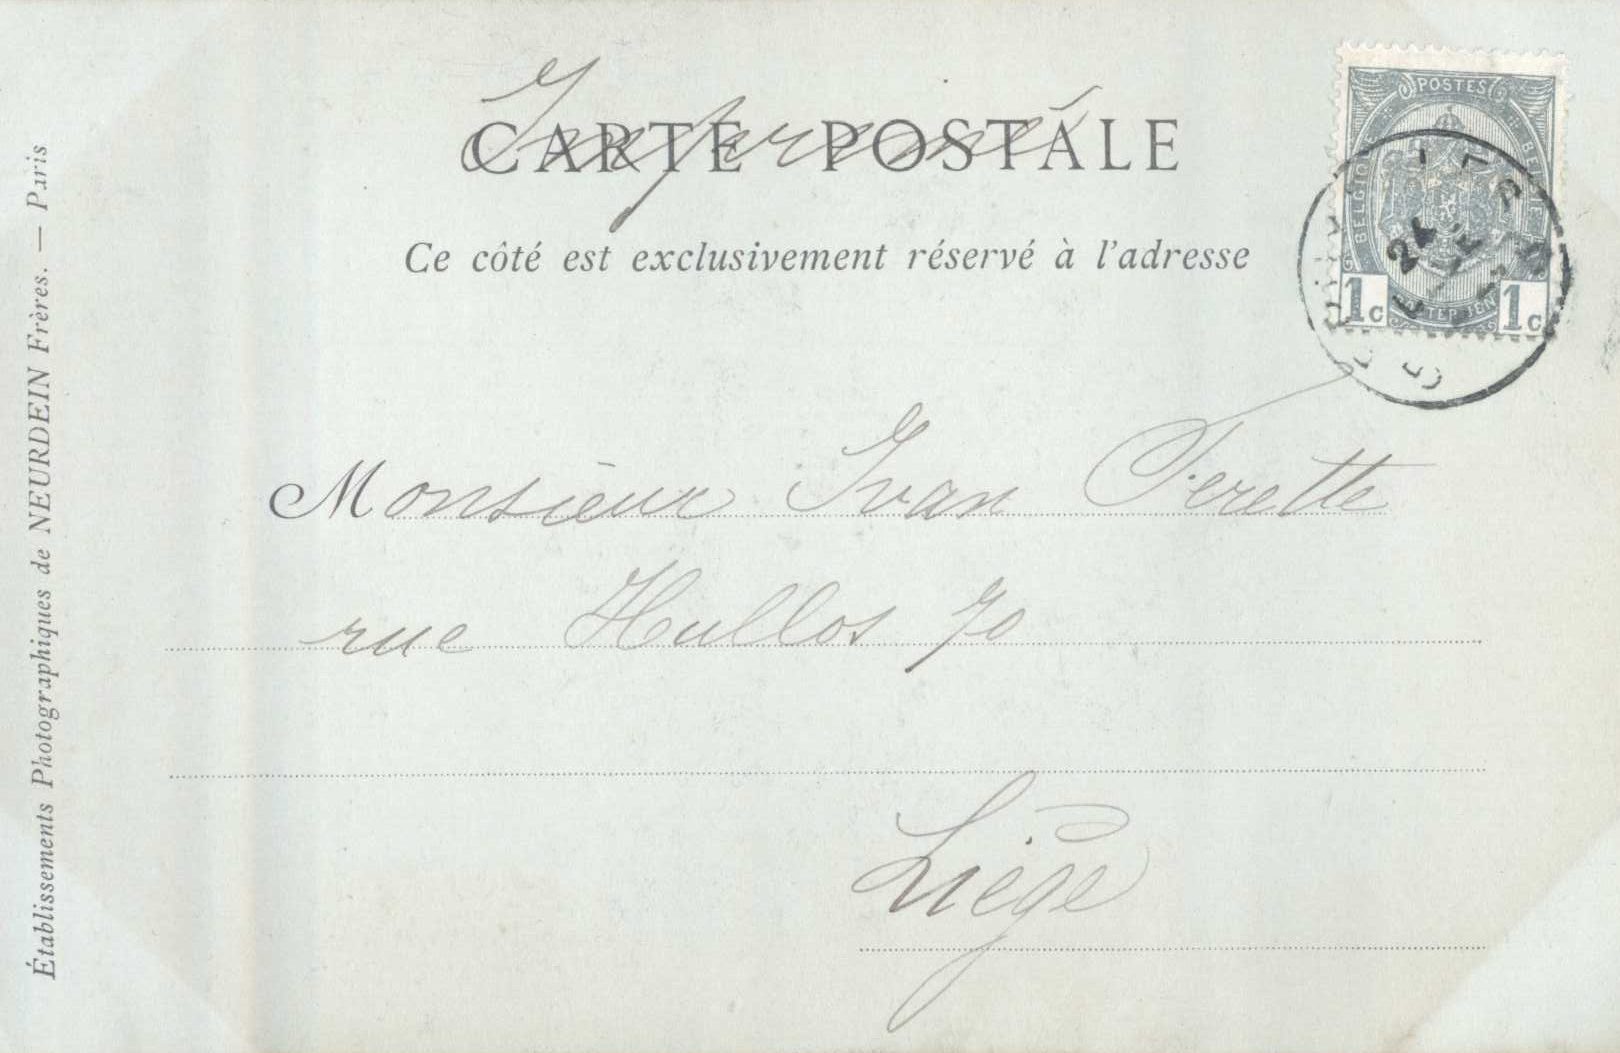 Imprimé
CARTE POSTALE
Ce côté est exclusivement réservé à l'adresse
POSTES
BELGIQUE
1c 1c
24
Monsieur Ivan Ferette
rue Hullos 70
Liège
Établissements Photographiques de NEURDEIN Frères. — Paris